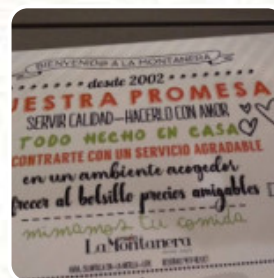 BIENVENIDO A LA MONTANERA
desde 2002
UESTRA PROMESA
SERVIR CALIDAD-HACERLO CON AMOR
TODO HECHO EN CASA
CONTRARTE CON UN SERVICIO AGRADABLE
en un ambiente acogedor
frecer al bolsillo precios amigables
mimamos tu comida
LaMontanera